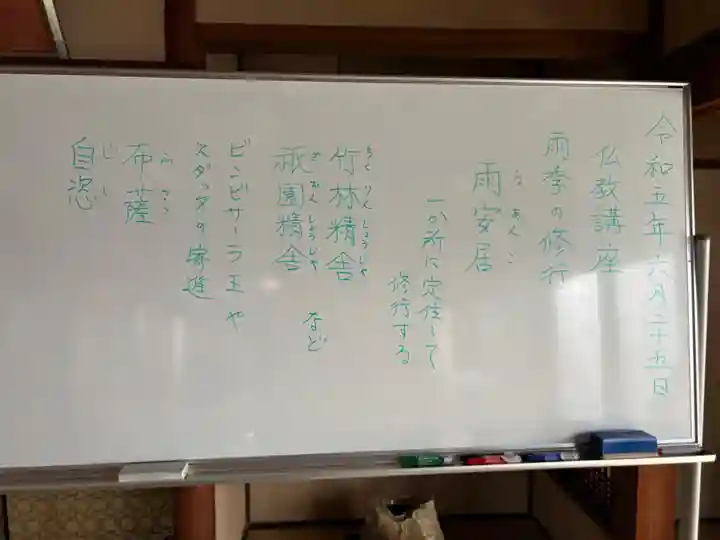 令和五年六月二十五日
仏教講座
雨季の修行
雨安居
う あんご
一か所に定住して
修行する
竹林精舎
ちくりんしょうじゃ
祇園精舎
ぎおんしょうじゃ
など
ビンビサーラ王や
スダッタの寄進
布薩
ふさつ
自恣
じし